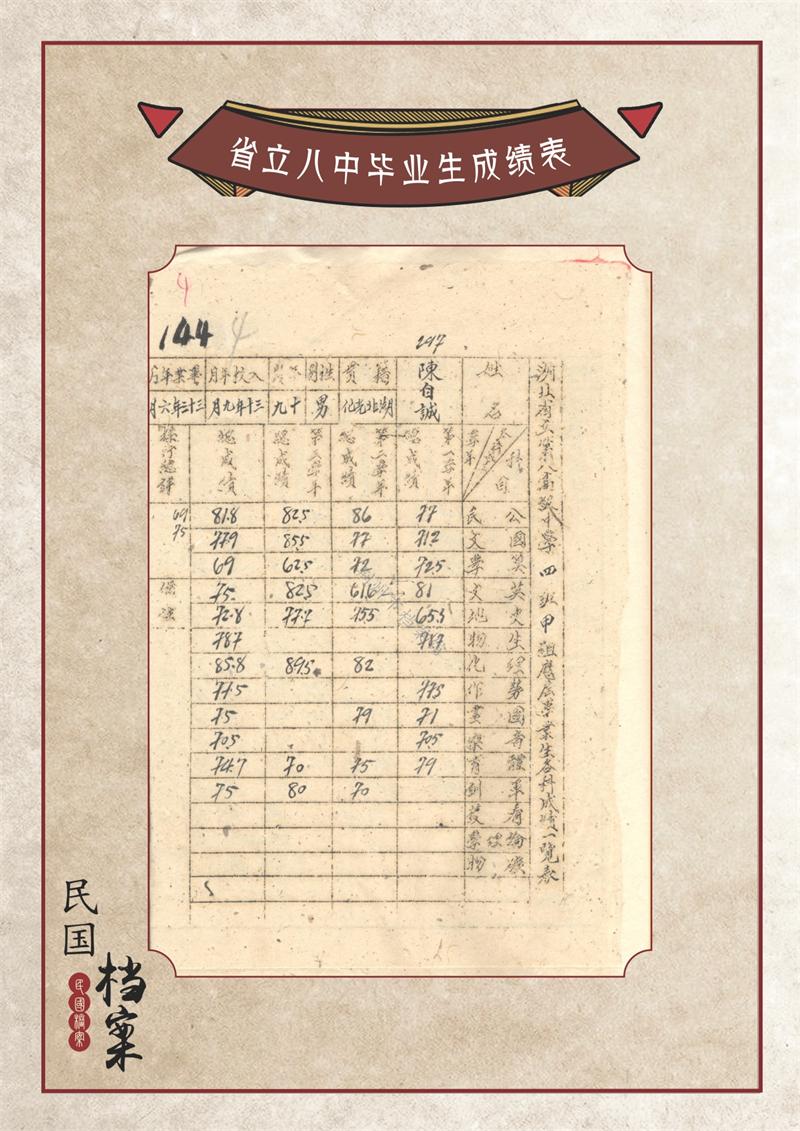 省立八中毕业生成绩表
4
144 4
297
湖北省立第八高級中學四班甲組應屆畢業生各科成績一覽表
姓名
陳自誠
籍貫
湖北光化
性別
男
年齡
十九
入校年月
三十年九月
畢業年月
三十三年六月
科目
學年
第一學年
總成績
第二學年
總成績
第三學年
總成績
總成績
操行總評
公民 77 86 82.5 81.8 69
國文 71.2 77 85.5 77.9 75
算學 72.5 72 62.5 69
英文 81 61.6 82.5 75 備註
史地 65.3 75.5 77.7 72.8
生物 78.7
理化 82 89.5 85.8
勞作 77.5 77.5
圖畫 71 79 75
音樂 70.5 70.5
體育 79 75 70 74.7
軍訓 70 80 75
看護
論理學
礦物
民国
档案
民國檔案